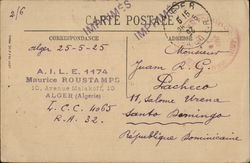 2/6
IMPRIMÉS
IMPRIMÉS
CARTE POSTALE
CORRESPONDANCE
ADRESSE
Alger 25-5-25
Monsieur
Juan R. G.
Pacheco
A. I. L. E. 1174
Maurice ROUSTAMPS
10, Avenue Malakoff, 10
ALGER (Algérie)
11, Salome Urena
L.C.C. 4065
Santo Domingo
R.A. 32.
République Dominicaine